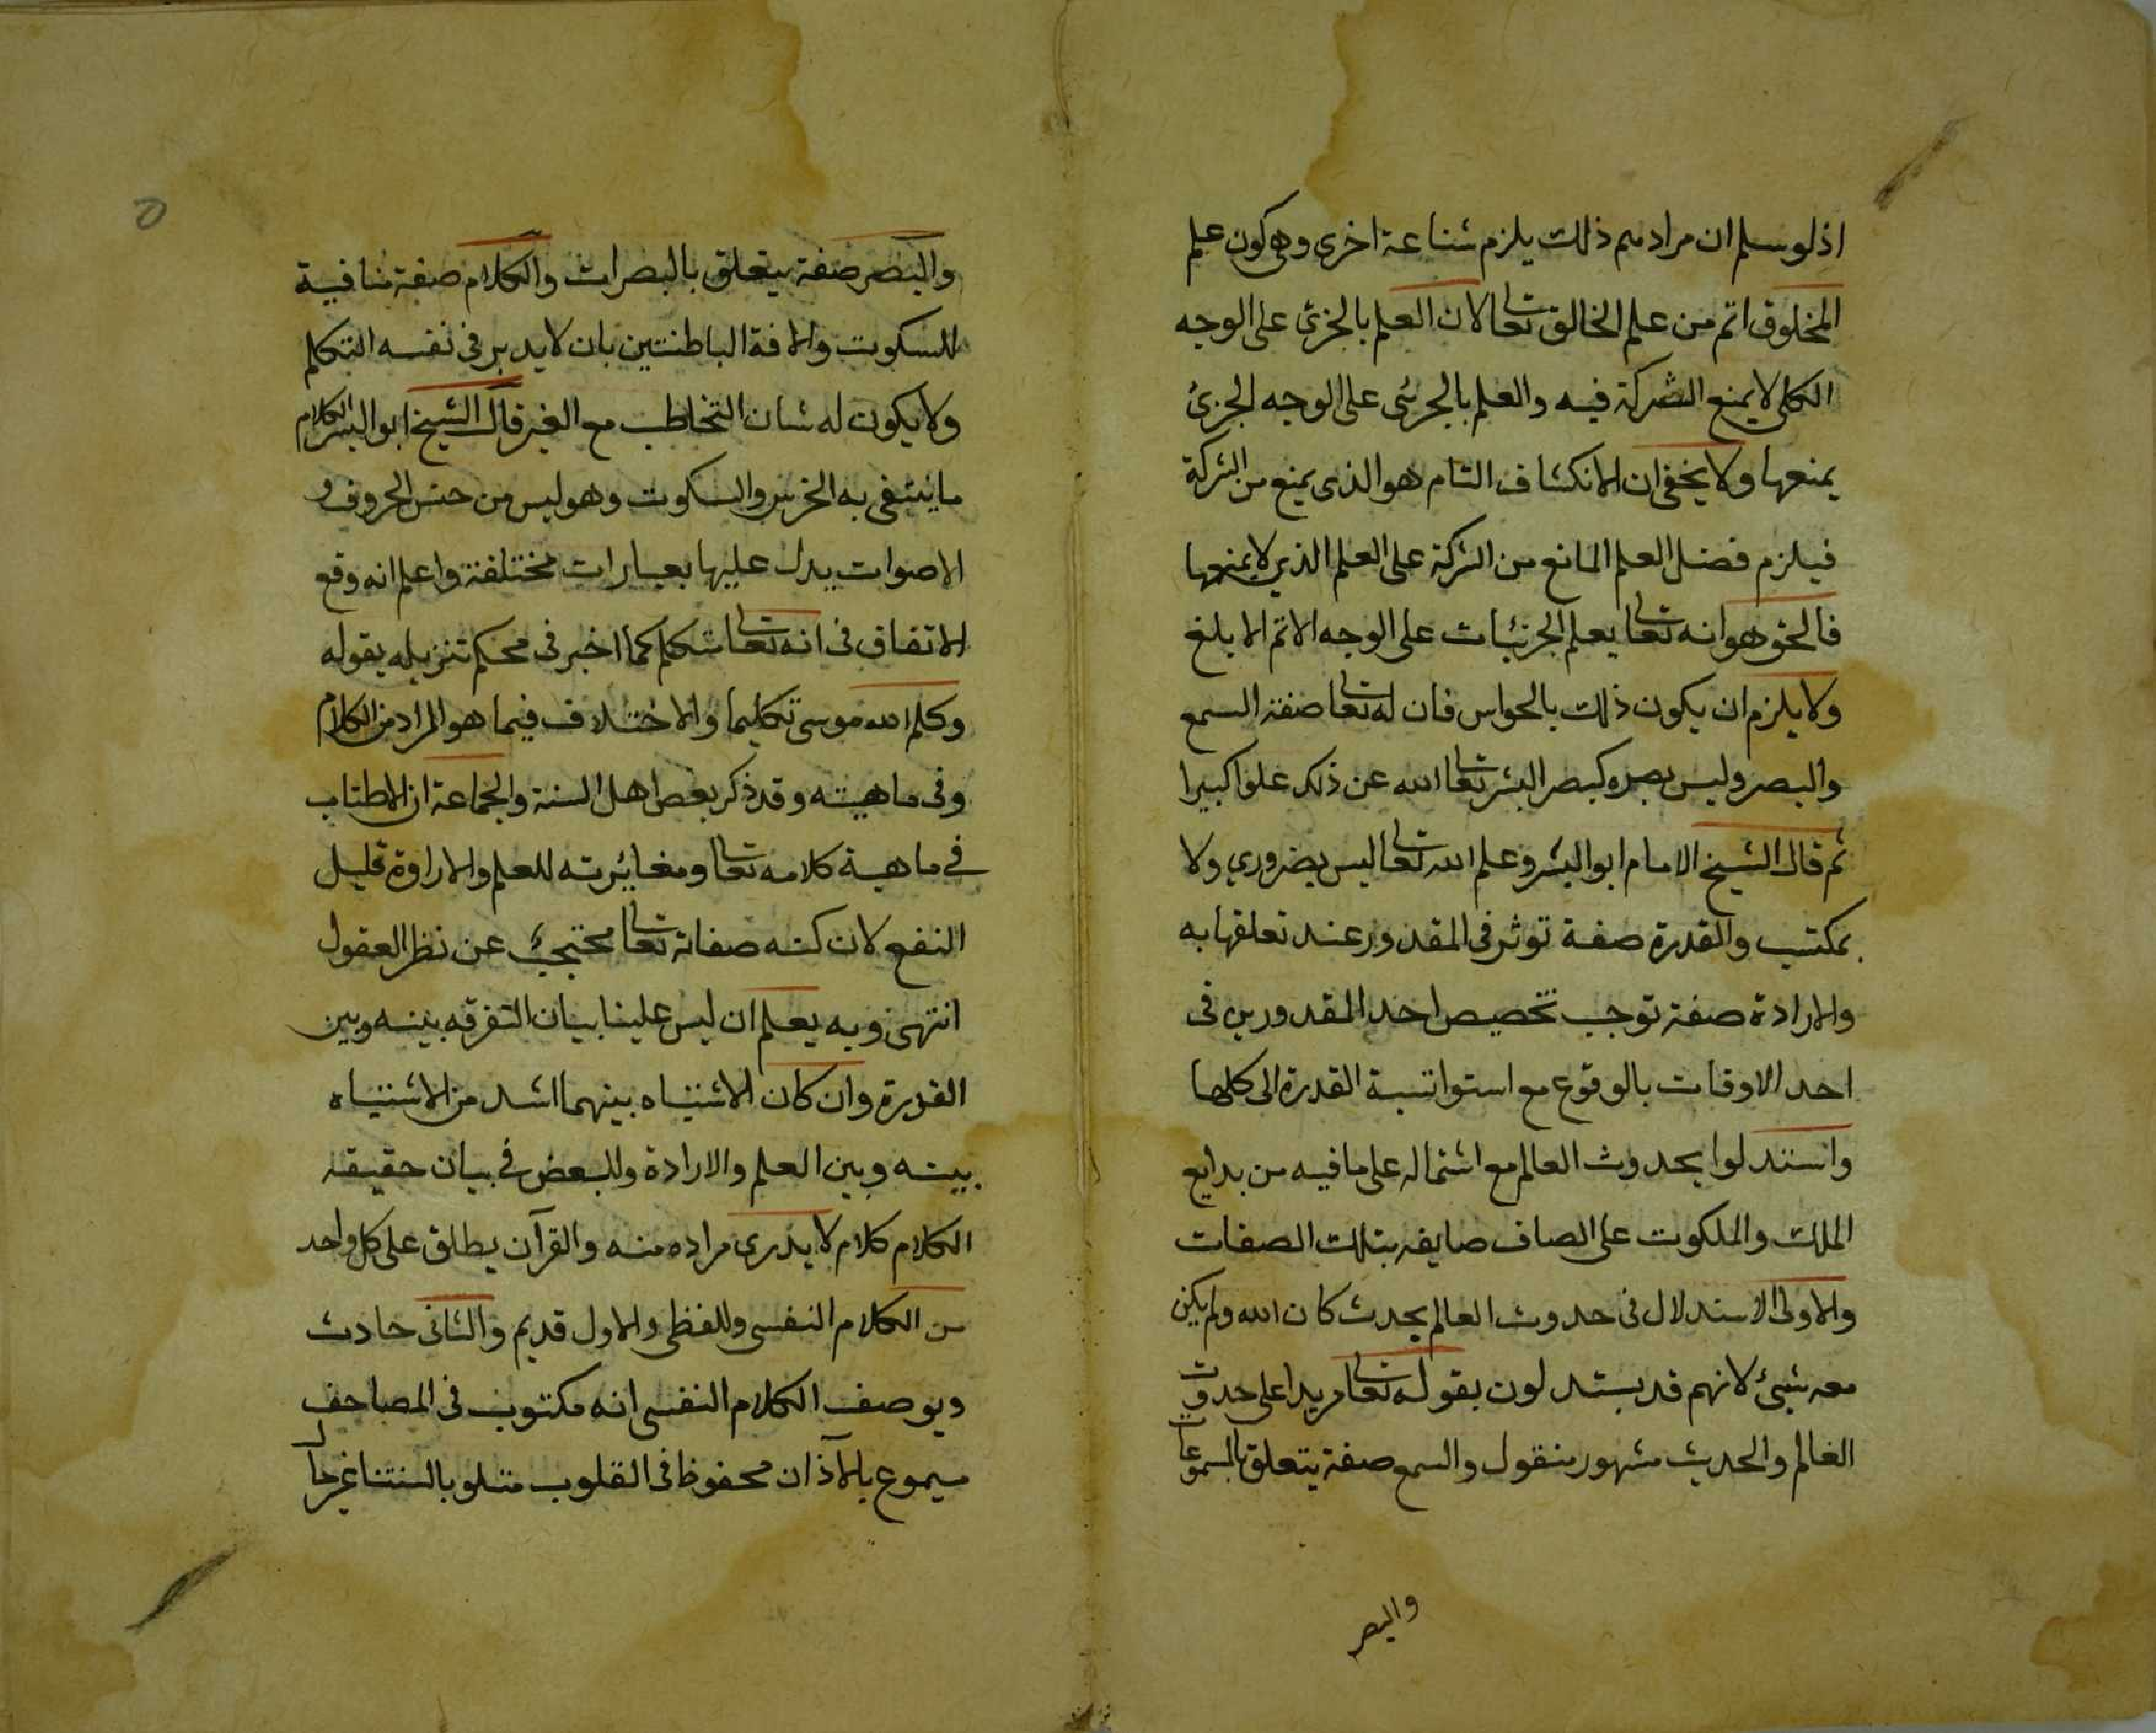 اذ لو سلم ان مرادهم ذلك يلزم شناعة اخرى وهى كون علم
المخلوق اتم من علم الخالق تعالى لان العلم بالجزئى على الوجه
الكلى لا يمنع الشركة فيه والعلم بالجزئى على الوجه الجزئ
يمنعها ولا يخفى ان الانكشاف التام هو الذى يمنع من الشركة
فيلزم فضل العلم المانع من الشركة على العلم الذي لا يمنعها
فالحق هو انه تعالى يعلم الجزئيات على الوجه الاتم الابلغ
ولا يلزم ان يكون ذلك بالحواس فان له تعالى صفة السمع
والبصر وليس بصره كبصر البشر تعالى الله عن ذلك علوا كبيرا
ثم قال الشيخ الامام ابو اليسر وعلم الله تعالى ليس بضروري ولا
بمكتسب والقدرة صفة توثر فى المقدور عند تعلقها به
والارادة صفة توجب تخصيص احد المقدورين فى
احد الاوقات بالوقوع مع استوا نسبة القدرة الى كلها
واستدلوا بحدوث العالم مع اشتماله على ما فيه من بدايع
الملك والملكوت على اتصاف صانعه بتلك الصفات
والاولى الاستدلال فى حدوث العالم بحديث كان الله ولم يكن
معه شيئ لانهم قد يستدلون بقوله تعالى مريدا على حدوث
العالم والحديث مشهور منقول والسمع صفة يتعلق بالمسموعات
والبصر
والبصر صفة يتعلق بالبصرات والكلام صفة منافية
للسكوت والافة الباطنتين بان لا يدبر فى نفسه التكلم
ولا يكون له شان التخاطب مع الغير قال الشيخ ابو اليسر الكلام
ما ينتفى به الخرس والسكوت وهو ليس من جنس الحروف و
الاصوات يدل عليها بعبارات مختلفة واعلم انه وقع
الاتفاق فى انه تعالى متكلم كما اخبر فى محكم تنزيله بقوله
وكلم الله موسى تكليما والاختلاف فيما هو المراد من الكلام
وفى ماهيته وقد ذكر بعض اهل السنة والجماعة ان الاطناب
في ماهية كلامه تعالى ومغائرته للعلم والارادة قليل
النفع لان كنه صفاته تعالى محتجب عن نظر العقول
انتهى وبه يعلم ان ليس علينا بيان التفرقه بينه وبين
القدرة وان كان الاشتباه بينهما اشد من الاشتباه
بينه وبين العلم والارادة وللبعض في بيان حقيقه
الكلام كلام لا يدرى مراده منه والقرآن يطلق على كل واحد
من الكلام النفسى وللفظى والاول قديم والثانى حادث
ويوصف الكلام النفسى انه مكتوب فى المصاحف
مسموع بالآذان محفوظ فى القلوب متلو بالسنتنا غير حال